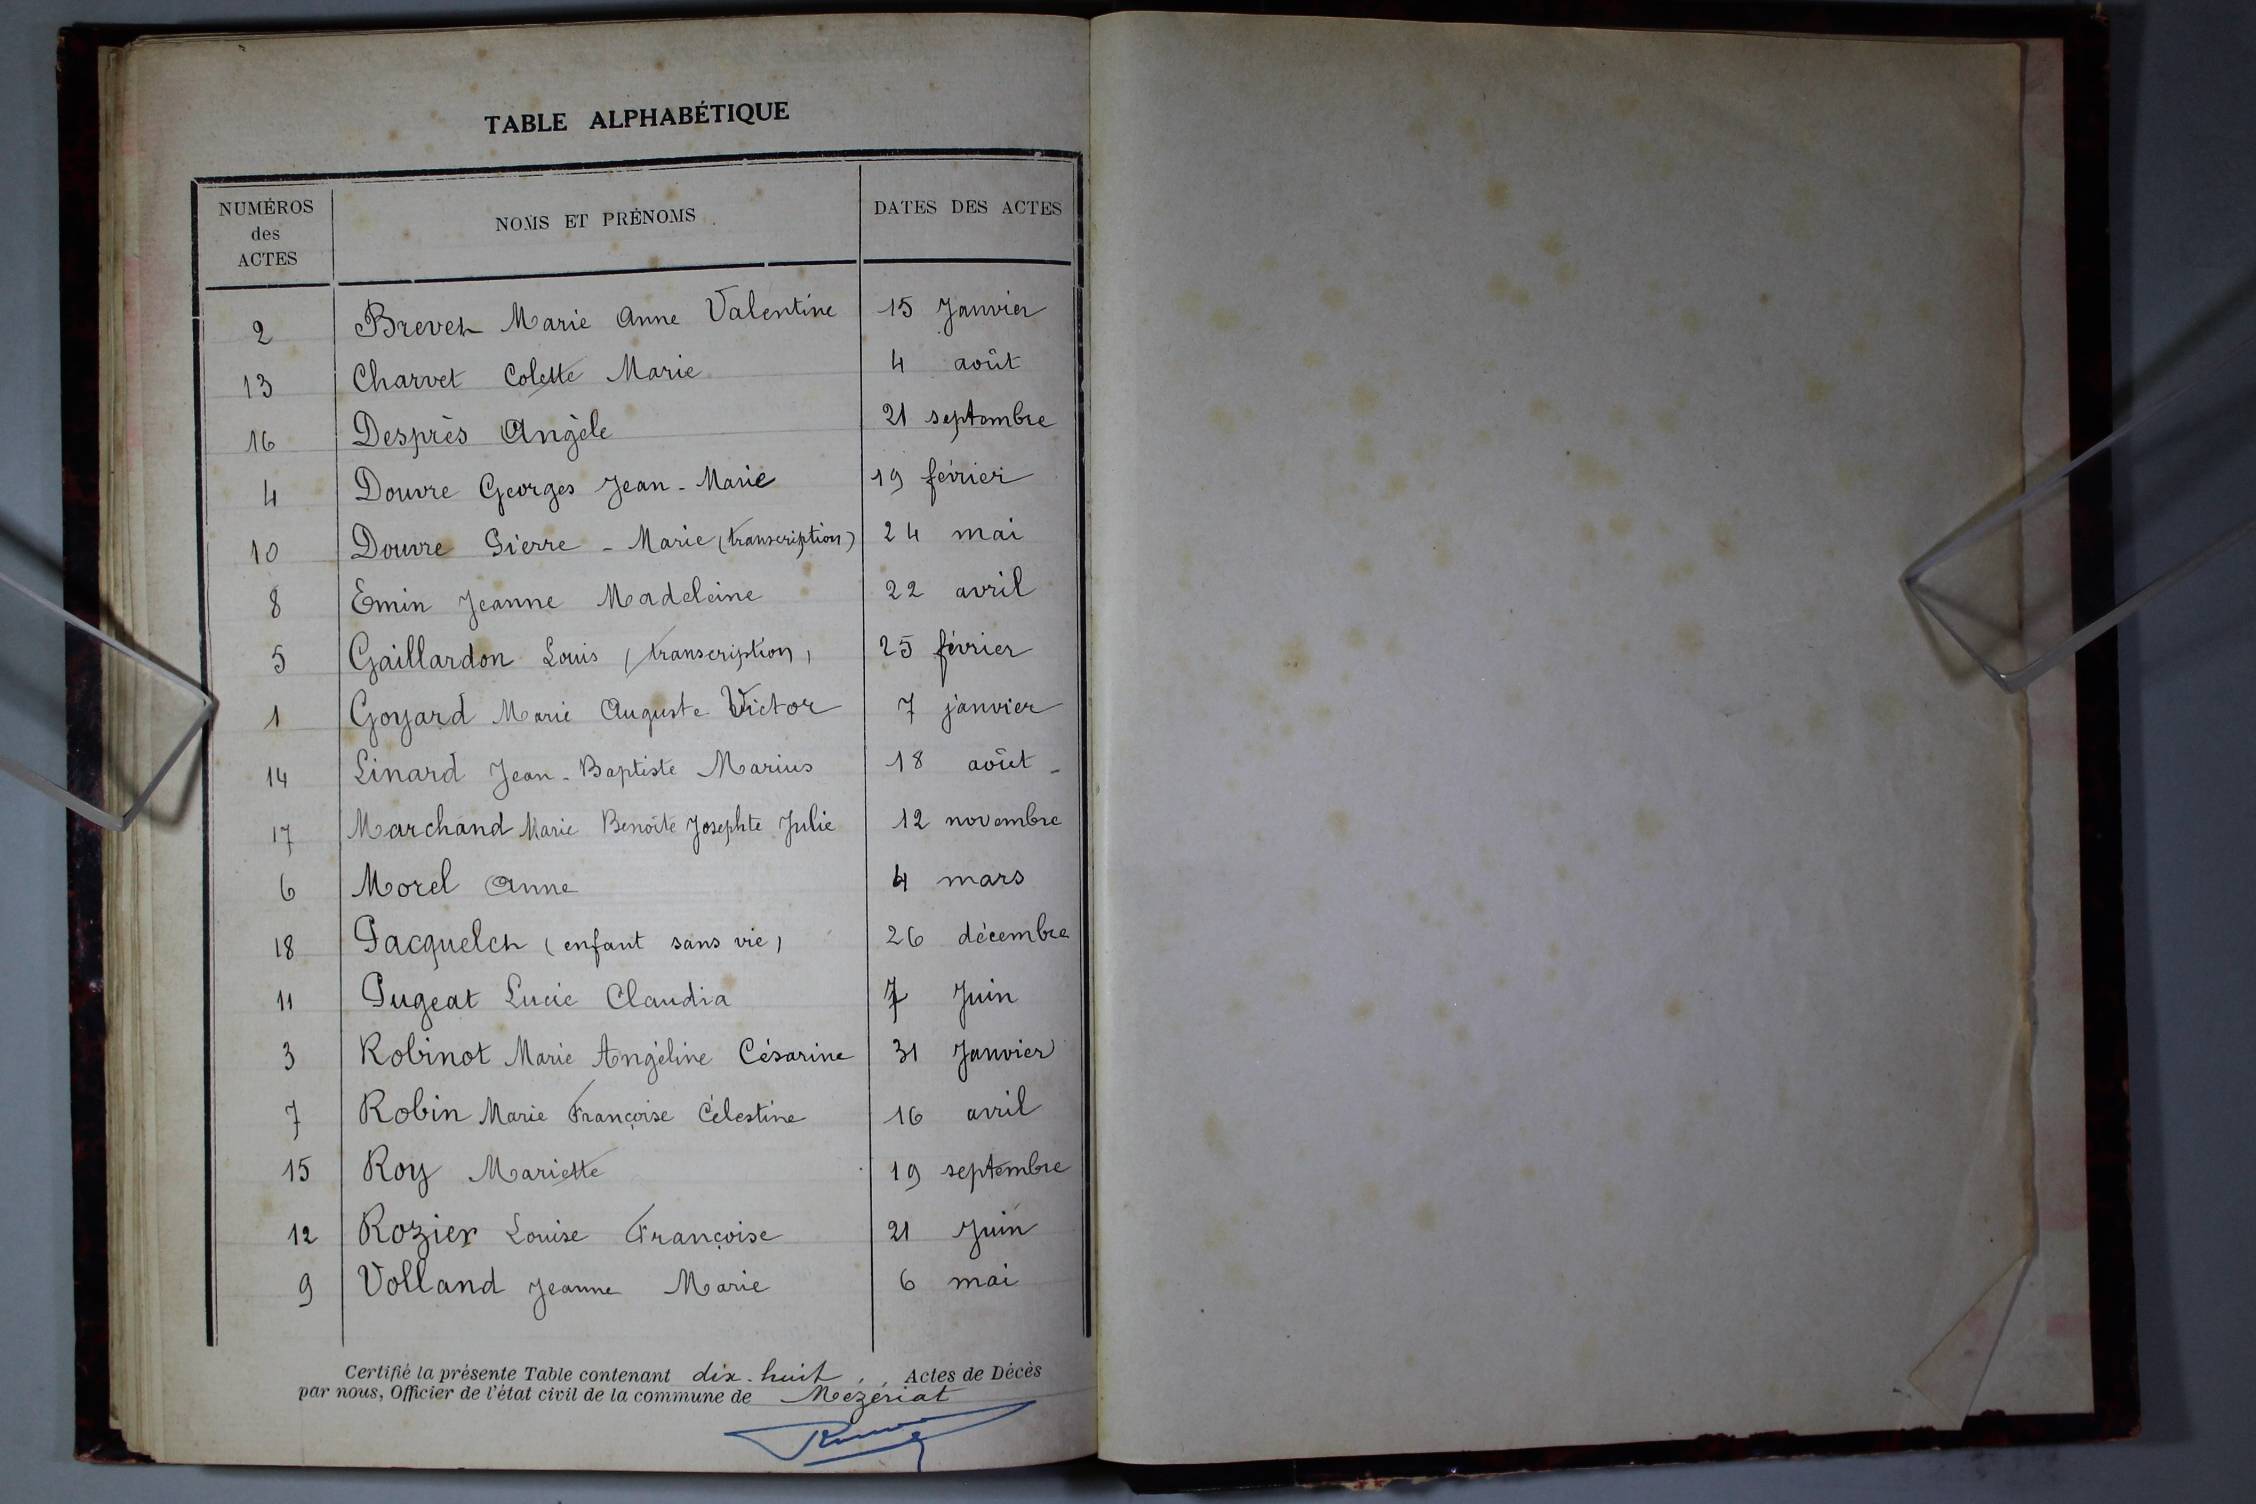 TABLE ALPHABÉTIQUE
NUMÉROS des ACTES NOMS ET PRÉNOMS DATES DES ACTES
2 Brevet Marie Anne Valentine 15 Janvier
13 Charvet Colette Marie 4 août
16 Desprès Angèle 21 septembre
4 Douvre Georges Jean-Marie 19 février
10 Douvre Pierre-Marie (transcription) 24 mai
8 Emin Jeanne Madeleine 22 avril
5 Gaillardon Louis (transcription) 25 février
1 Goyard Marie Auguste Victor 7 janvier
14 Linard Jean-Baptiste Marius 18 août
17 Marchand Marie Benoîte Josephte Julie 12 novembre
6 Morel Anne 4 mars
18 Pacquelet (enfant sans vie) 26 décembre
11 Pugeat Lucie Claudia 7 Juin
3 Robinot Marie Angéline Césarine 31 Janvier
7 Robin Marie Françoise Célestine 16 avril
15 Roy Mariette 19 septembre
12 Rozier Louise Françoise 21 Juin
9 Volland Jeanne Marie 6 mai
Certifié la présente Table contenant dix-huit Actes de Décès
par nous, Officier de l'état civil de la commune de Mezériat